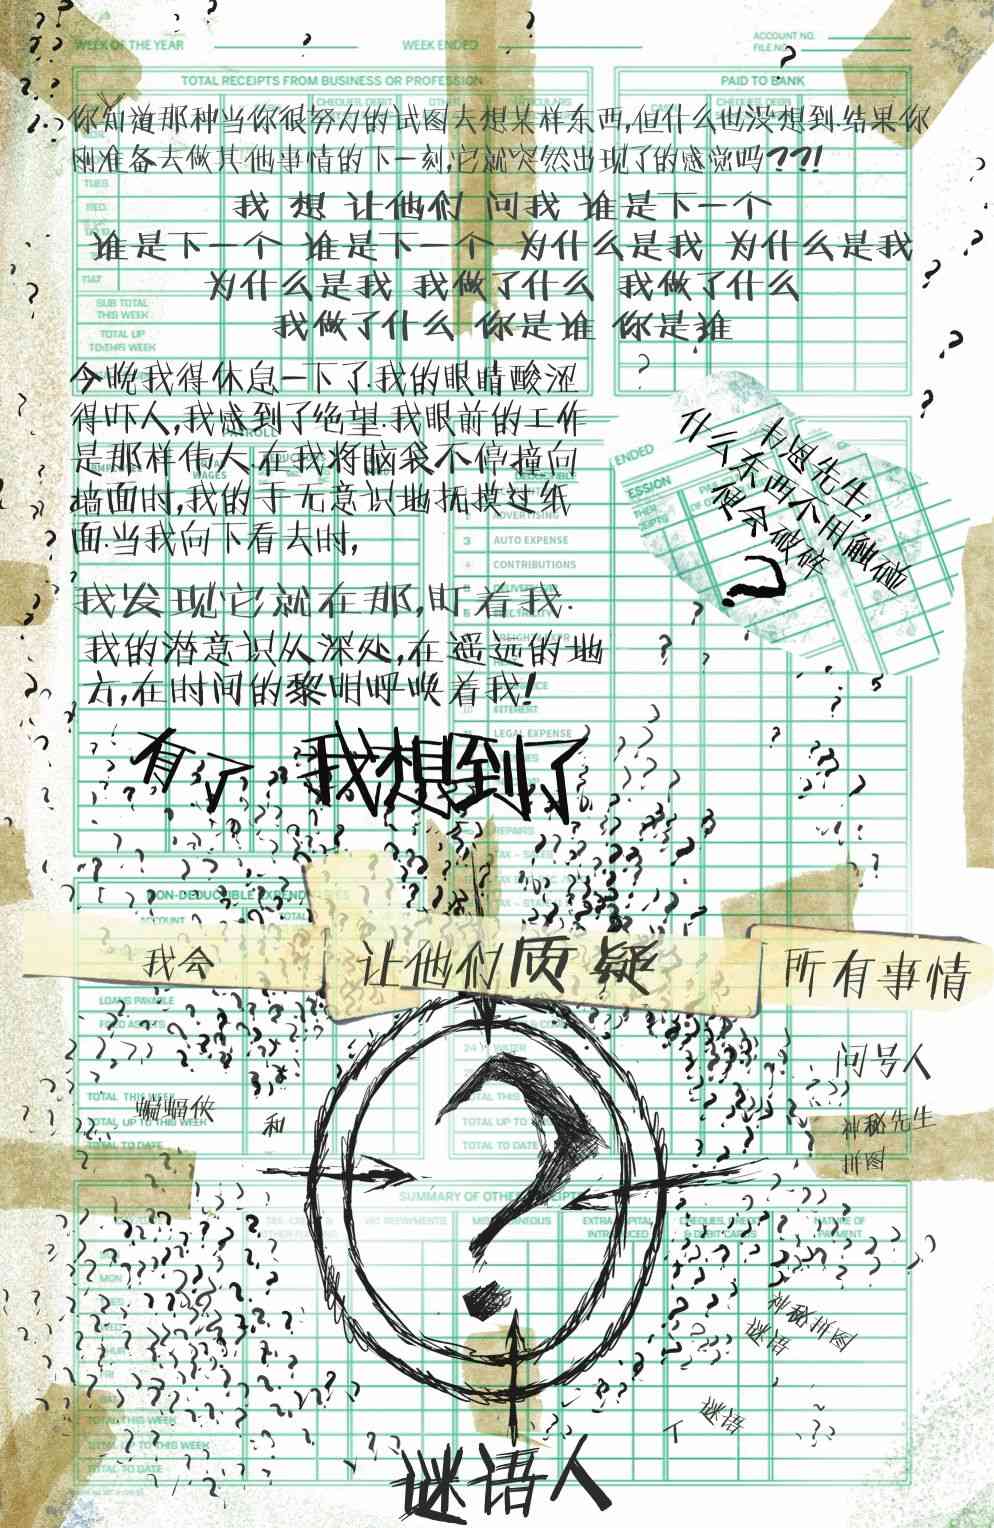 WEEK OF THE YEAR
WEEK ENDED
ACCOUNT NO.
FILE NO.
TOTAL RECEIPTS FROM BUSINESS OR PROFESSION
PAID TO BANK
你知道那种当你很努力的试图去想某样东西,但什么也没想到.结果你
刚准备去做其他事情的下一刻,它就突然出现了的感觉吗??!
TUES.
WED.
我 想 让他们 问我 谁是下一个
谁是下一个 谁是下一个 为什么是我 为什么是我
为什么是我 我做了什么 我做了什么
SUB TOTAL
THIS WEEK
我做了什么 你是谁 你是谁
TOTAL UP
TO THIS WEEK
今晚我得休息一下了.我的眼睛酸涩
得吓人,我感到了绝望.我眼前的工作
PAYROLL
是那样伟大.在我将脑袋不停撞向
WAGES
DEDUCTIBLE
墙面时,我的手无意识地抚摸过纸
面.当我向下看去时,
ENDED
韦恩先生,
什么东西不用触碰
便会破碎
?
ADVERTISING
3 AUTO EXPENSE
4 CONTRIBUTIONS
5 DELIVERY EXP
6 ELECTRICITY
FREIGHT & EXPR
我发现它就在那,盯着我.
我的潜意识从深处,在遥远的地
方,在时间的黎明呼唤着我!
10 INTEREST
11 LEGAL EXPENSE
有了 我想到了
REPAIRS
TAX - SALES
NON-DEDUCTIBLE EXPENDITURES
ACCOUNT
TOTAL
我会 让他们质疑 所有事情
LOANS PAYABLE
FIXED ASSETS
24 WATER
问号人
TOTAL THIS WEEK
TOTAL THIS
蝙蝠侠 和
神秘先生
拼图
TOTAL UP TO THIS WEEK
TOTAL UP TO THIS
TOTAL TO DATE
TOTAL TO DATE
?
SUMMARY OF OTHER RECEIPTS
MISCELLANEOUS
EXTRA CAPITAL
INTRODUCED
CHEQUES, CREDIT
& DEBIT CARDS
NATURE OF
PAYMENT
MON
神秘拼图
谜语
个 谜语
TOTAL THIS WEEK
TOTAL UP TO THIS WEEK
TOTAL TO DATE
谜语人